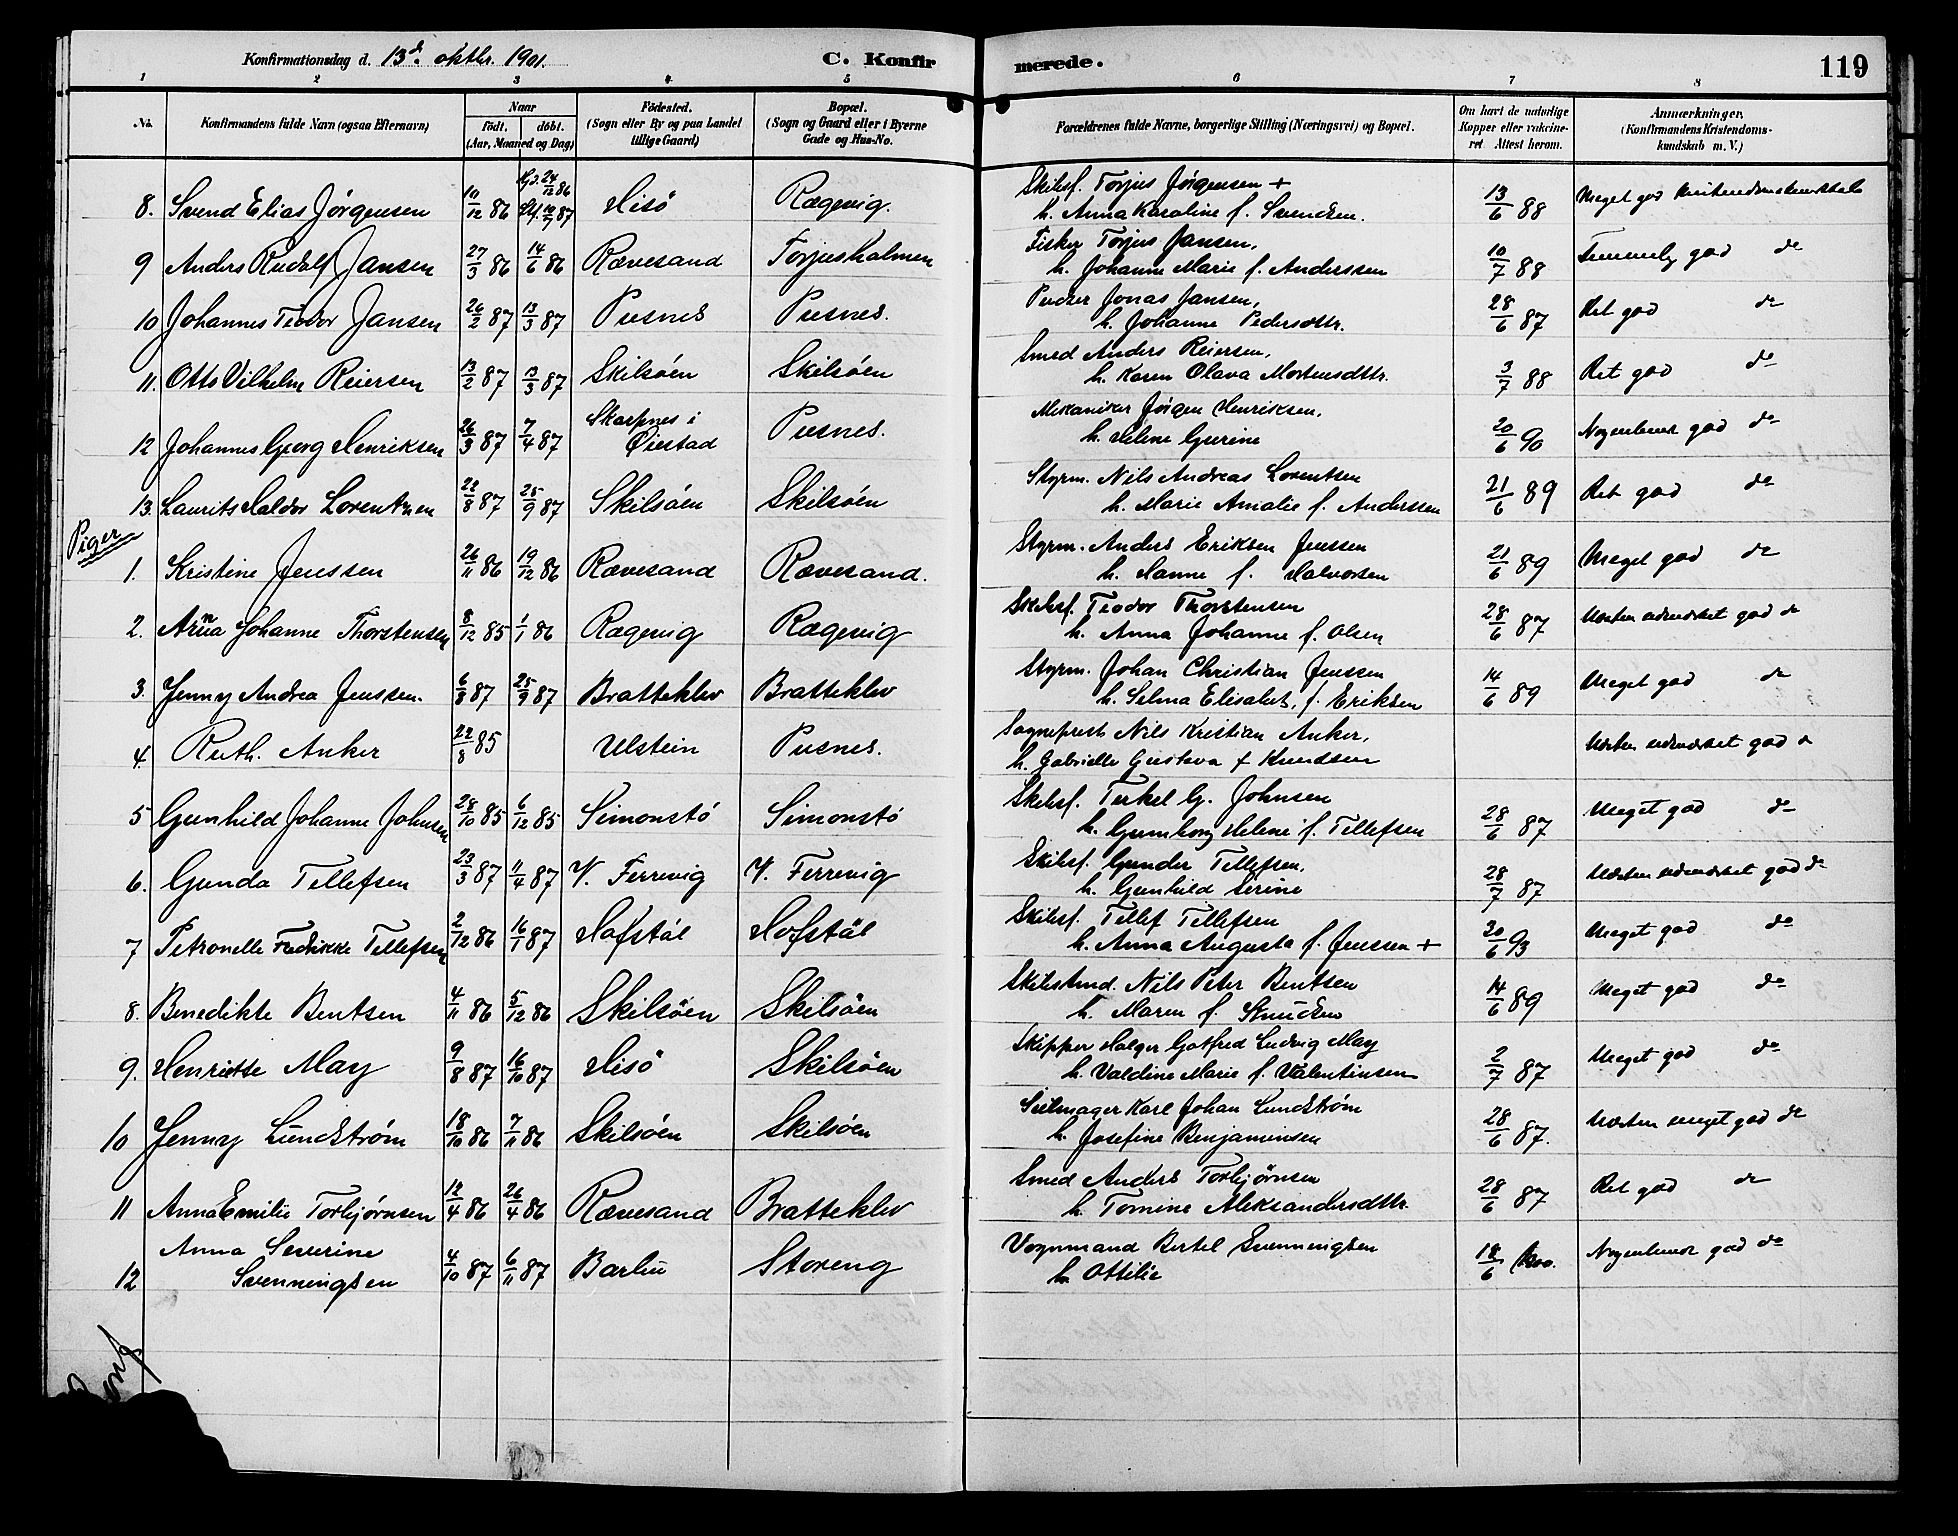 Konfirmationsdag d. 13d oktbr. 1901. C. Konfirmerede. 119
1 2 3 4 5 6 7 8
No. Konfirmandens fulde Navn (ogsaa Efternavn) Naar födt. döbt. (Aar, Maaned og Dag) Födested. (Sogn eller By og paa Landet tillige Gaard) Bopæl. (Sogn og Gaard eller i Byerne Gade og Hus-No. Forældrenes fulde Navne, borgerlige Stilling (Næringsvei) og Bopæl. Om havt de naturlige Kopper eller vakcineret. Attest herom. Anmærkninger. (Konfirmandens Kristendomskundskab m. V.)
8. Svend Elias Jörgensen 10/12 86 Hjd. 24/12 86 10/7 87 Hisö Rægevig. Skibsf. Torjus Jörgensen +
h. Anna Karoline f. Svendsen. 13/6 88 Meget god Kristendomskundskab
9 Anders Rudolf Jansen 27/3 86 14/6 86 Rævesand Torjusholmen Fisker Torjus Jansen,
h. Johanne Marie f. Anderssen 10/7 88 Temmelig god do
10 Johannes Teodor Jansen 26/2 87 13/3 87 Pusnes Pusnes. Pudser Jonas Jansen,
h. Johanne Pedersdttr. 28/6 87 Ret god do
11. Otto Vilhelm Reiersen 13/2 87 13/3 87 Skilsöen Skilsöen Smed Anders Reiersen,
h. Karen Olava Mortensdttr. 3/7 88 Ret god do
12 Johannes Georg Henriksen 26/3 87 7/4 87 Skarpnes i Öiestad Pusnes. Mekaniker Jörgen Henriksen.
h. Helene Gurine 20/6 90 Nogenlunde god do
13. Laurits Haldor Lorentzen 22/8 87 25/9 87 Skilsöen Skilsöen Styrm. Nils Andreas Lorentsen
h. Marie Amalie f. Anderssen 21/6 89 Ret god do
Piger
1. Kristine Jenssen 26/11 86 19/12 86 Rævesand Rævesand. Styrm. Anders Eriksen Jenssen
h. Hanne f. Halvorsen 21/6 89 Meget god do
2. Anna Johanne Thorstensen 8/12 85 1/1 86 Rægevig Rægevig Skibsf. Teodor Thorstensen
h. Anna Johanne f. Olsen 28/6 87 Næsten udmærket god do
3. Jenny Andrea Jenssen. 6/8 87 25/9 87 Bratteklev Bratteklev Styrm. Johan Christian Jenssen
h. Selma Elisabet, f. Eriksen 14/6 89 Meget god do
4. Ruth. Anker 22/8 85 Ulstein Pusnes. Sogneprest Nils Kristian Anker,
h. Gabrielle Gustava f Knudsen Næsten udmærket god do
5 Gunhild Johanne Johnsen 28/10 85 6/12 85 Simonstö Simonstö Skibsf. Terkel G. Johnsen
h. Gunborg Helene f. Tellefsen 28/6 87 Meget god do
6. Gunda Tellefsen 23/3 87 11/4 87 V. Ferrevig V. Ferrevig Skibsf. Gunder Tellefsen,
h. Gunhild Serine 28/7 87 Næsten udmærket god do
7 Petronelle Fredrikke Tellefsen 2/12 86 16/1 87 Hofstöl Hofstöl Skibsf. Tellef Tellefsen
h. Anna Augusta f. Jenssen + 20/6 93 Meget god do
8. Benedikte Bentsen 4/11 86 5/12 86 Skilsöen Skilsöen Skibstmd. Nils Peter Bentsen
h. Maren f. Knudsen 14/6 89 Meget god do
9. Henriette May 9/8 87 16/10 87 Hisö Skilsöen Skipper Holger Gotfred Ludvig May
h. Valdine Marie f. Valentinsen 2/7 87 Meget god do
10 Jenny Lundström 18/10 86 7/11 86 Skilsöen Skilsöen Seilmager Karl Johan Lundström
h. Josefine Benjaminsen 28/6 87. Næsten meget god do
11 Anna Emilie Torbjørnsen 12/4 86 26/4 86 Rævesand Bratteklev Smed Anders Torbjørnsen
h. Tomine Aleksandersdttr. 28/6 87 Ret god do
12 Anna Severine Svenningsen 4/10 87 6/11 87 Barbu Storeng Vognmand Bertel Svenningsen
h. Ottilie 18/6 Nogenlunde god do